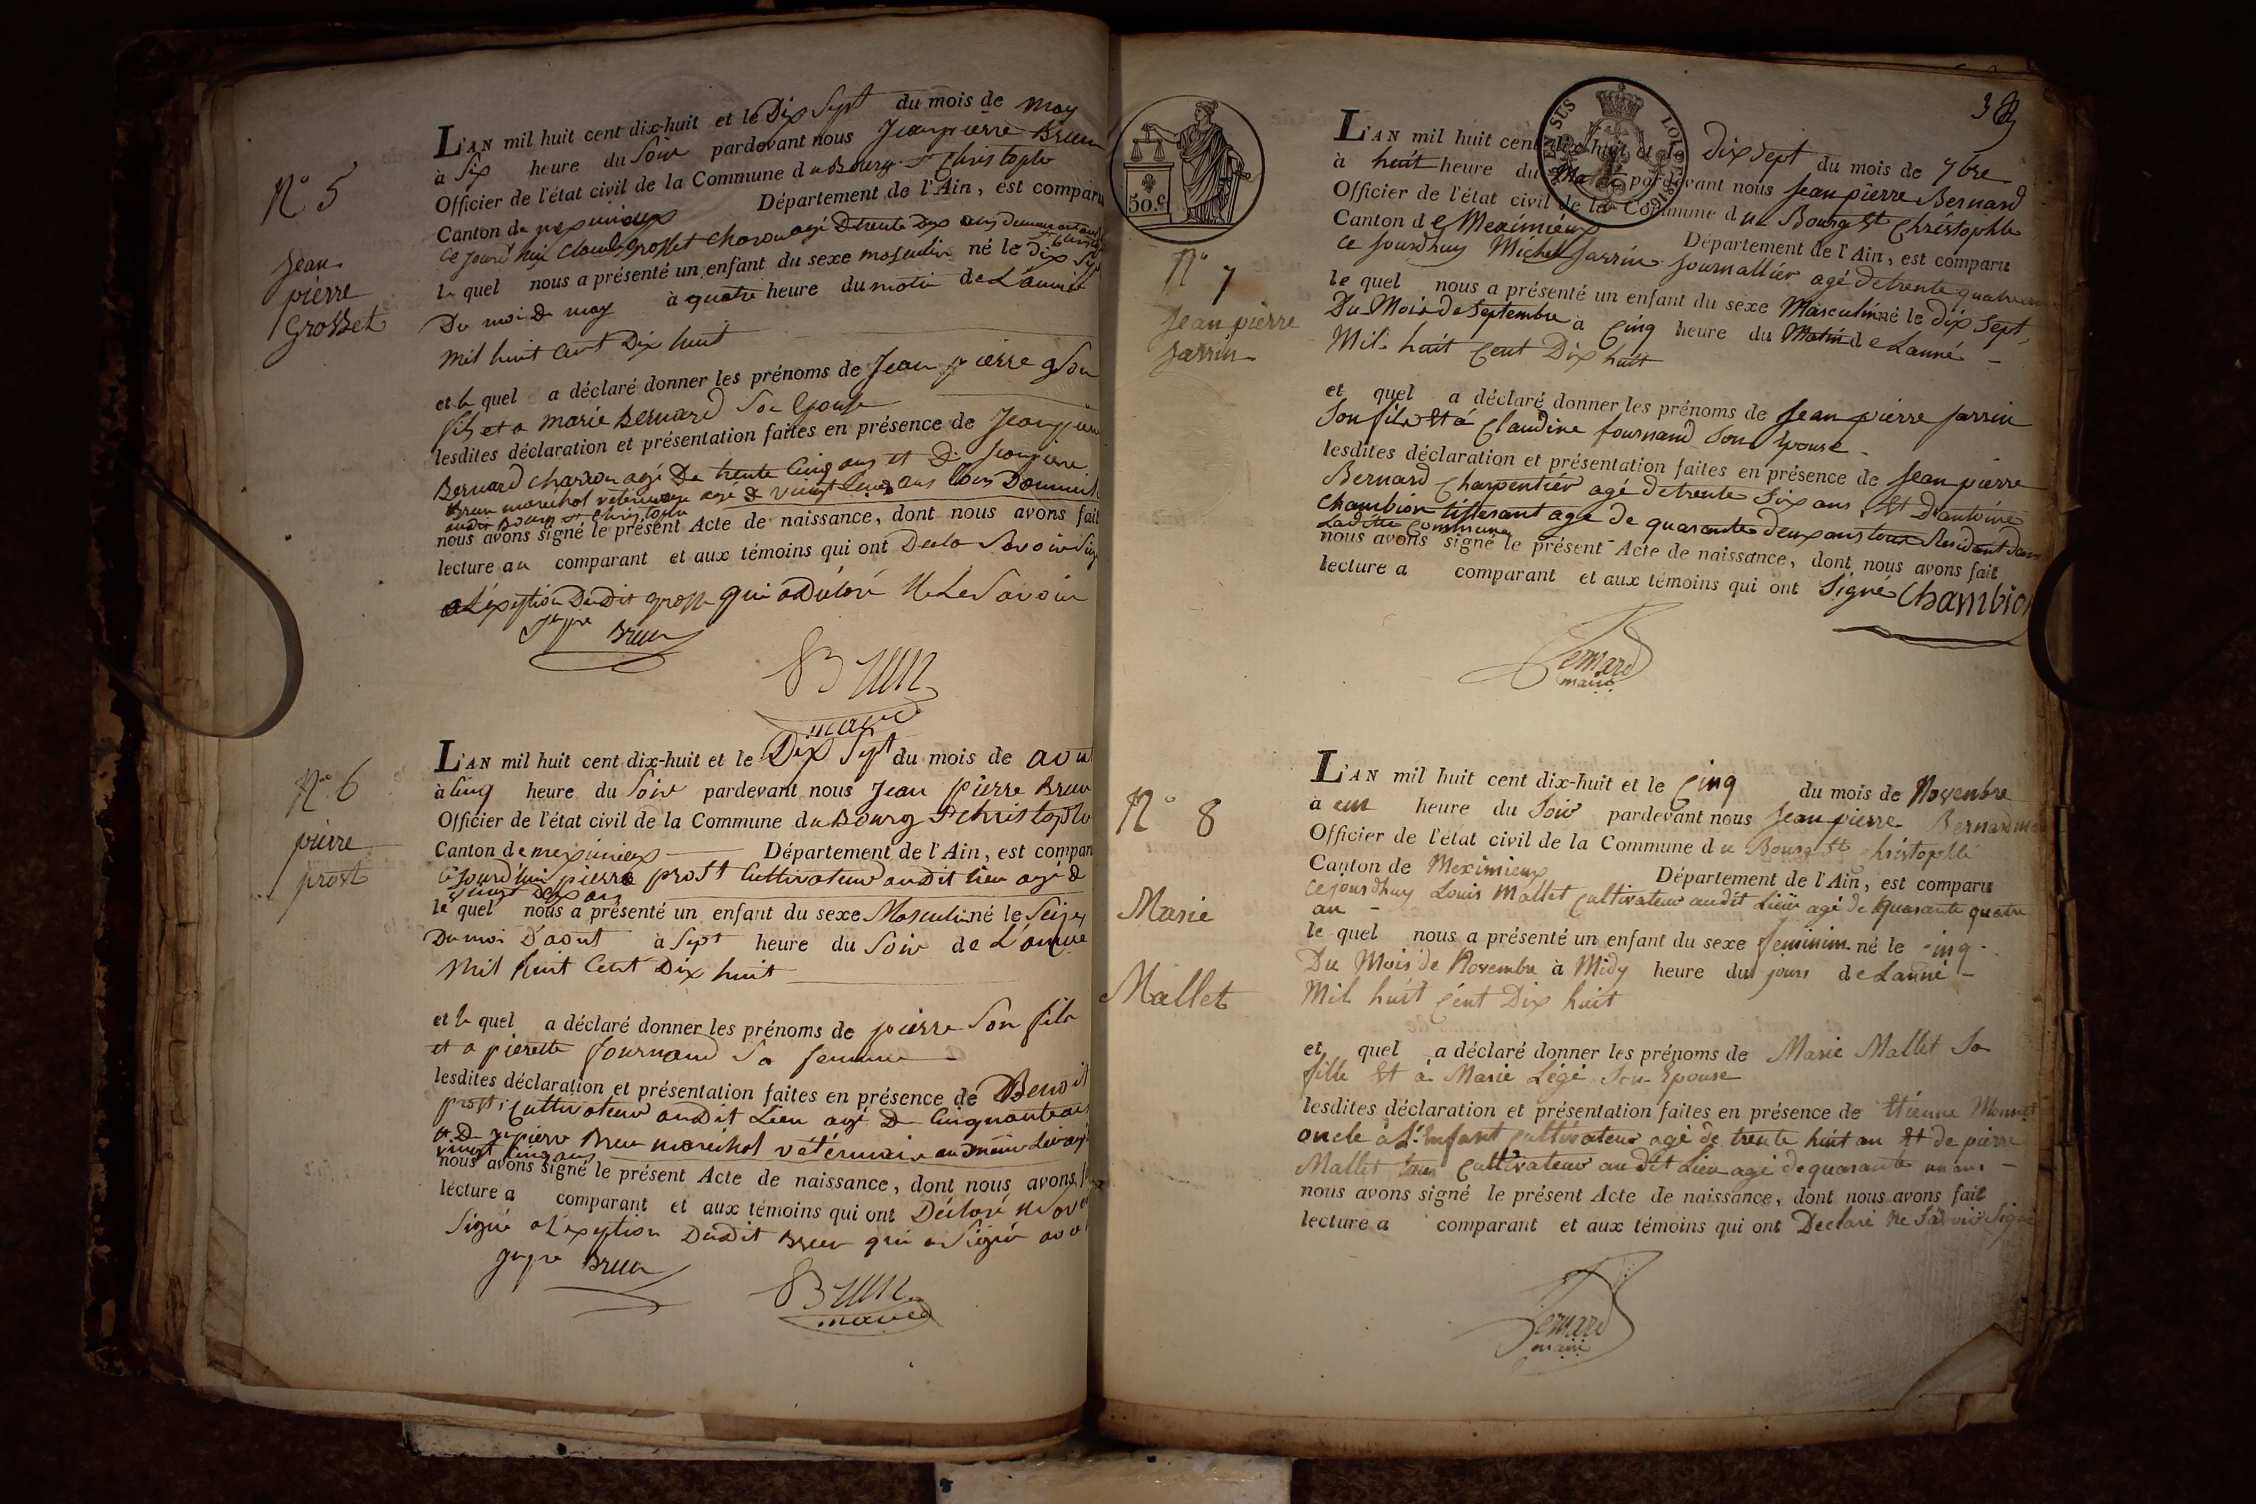 N° 5
Jean
pierre
Grosset
L'AN mil huit cent dix-huit et le Dix Sept du mois de may
à Six heure du Soir pardevant nous Jean pierre Brun
Officier de l'état civil de la Commune du Bourg St Christophe
Canton de meximieux Département de l'Ain, est comparu
ce jourd'hui Claude Grosset charon agé de trente Dix ans
le quel nous a présenté un enfant du sexe masculin né le dix Sept
Du moi de may à quatre heure du matin de L'année
mil huit cent Dix huit
et le quel a déclaré donner les prénoms de Jean pierre a Son
fils et a marie Bernard Son Epouse
lesdites déclaration et présentation faites en présence de Jean pierre
Bernard charron agé De trente Cinq ans et De Jean pierre
Brun maréchal vétérinaire agé de vingt Cinq ans tous Domiciliés
audit Bourg St Christophe
nous avons signé le présent Acte de naissance, dont nous avons fait
lecture au comparant et aux témoins qui ont Declaré Savoir Signé
a L'exeption Dudit grosset qui a Déclaré Ne Le Savoir
Brun
Brun
maire
N° 6
pierre
prost
L'AN mil huit cent dix-huit et le Dix Sept du mois de aout
à Cinq heure du Soir pardevant nous Jean pierre Brun
Officier de l'état civil de la Commune du Bourg St Christophe
Canton de meximieux Département de l'Ain, est comparu
Cejourd'hui pierre prost Cultivateur audit lieu agé de
vingt Dix ans
le quel nous a présenté un enfant du sexe Masculin né le Seize
Du moi D'aout à Sept heure du Soir de L'année
Mil huit Cent Dix huit
et le quel a déclaré donner les prénoms de pierre Son fils
et a pierette fournand Sa femme
lesdites déclaration et présentation faites en présence de Benoit
prost, Cultivateur audit Lieu agé De Cinquante ans
et De jn pierre Brun maréchal vétérinaire au même Lieu agé
vingt Cinq ans
nous avons signé le présent Acte de naissance, dont nous avons
lecture a comparant et aux témoins qui ont Déclaré
Signé a L'exeption Dudit Brun qui a Signé
Brun
Brun
maire
50.c
N° 7
Jean pierre
Jarrin
L'AN mil huit cent dix-huit et le Dix Sept du mois de 7bre
à huit heure du pardevant nous Jean pierre Bernard
Officier de l'état civil de la Commune du Bourg St Christophle
Canton de Meximieux Département de l'Ain, est comparu
Ce Jourdhuy Michel Jarrin Journallier agé de trente quatre ans
le quel nous a présenté un enfant du sexe Masculin né le dix Sept
Du Mois de Septembre à Cinq heure du Matin de Lanné
Mil huit Cent Dix huit
et quel a déclaré donner les prénoms de Jean pierre Jarrin
Son fils Et à Claudine fournand Son Epouse
lesdites déclaration et présentation faites en présence de Jean pierre
Bernard Charpentier agé de trente Six ans, Et D'antoine
Chambion tisserant agé de quarante deux ans tous Residant dans
Laditte Commune
nous avons signé le présent Acte de naissance, dont nous avons fait
lecture a comparant et aux témoins qui ont Signé Chambion
Bernard
maire
N° 8
Marie
Mallet
L'AN mil huit cent dix-huit et le Cinq du mois de Novenbre
à une heure du Soir pardevant nous Jean pierre Bernard
Officier de l'état civil de la Commune du Bourg St Christophle
Canton de Meximieux Département de l'Ain, est comparu
Cejourdhuy Louis Mallet Cultivateur audit Lieu agé de quarante quatre
an
le quel nous a présenté un enfant du sexe feminin né le Cinq
Du Mois de Novembre à Midy heure du jours de Lanné
Mil huit Cent Dix huit
et quel a déclaré donner les prénoms de Marie Mallet Sa
fille Et à Marie Légé Son Epouse
lesdites déclaration et présentation faites en présence de Etienne Monnet
oncle à L'Enfant Cultivateur agé de trente huit an Et de pierre
Mallet tous Cultivateur audit Lieu agé de quarante un ans
nous avons signé le présent Acte de naissance, dont nous avons fait
lecture a comparant et aux témoins qui ont Declaré Ne Savoir Signé
Bernard
maire